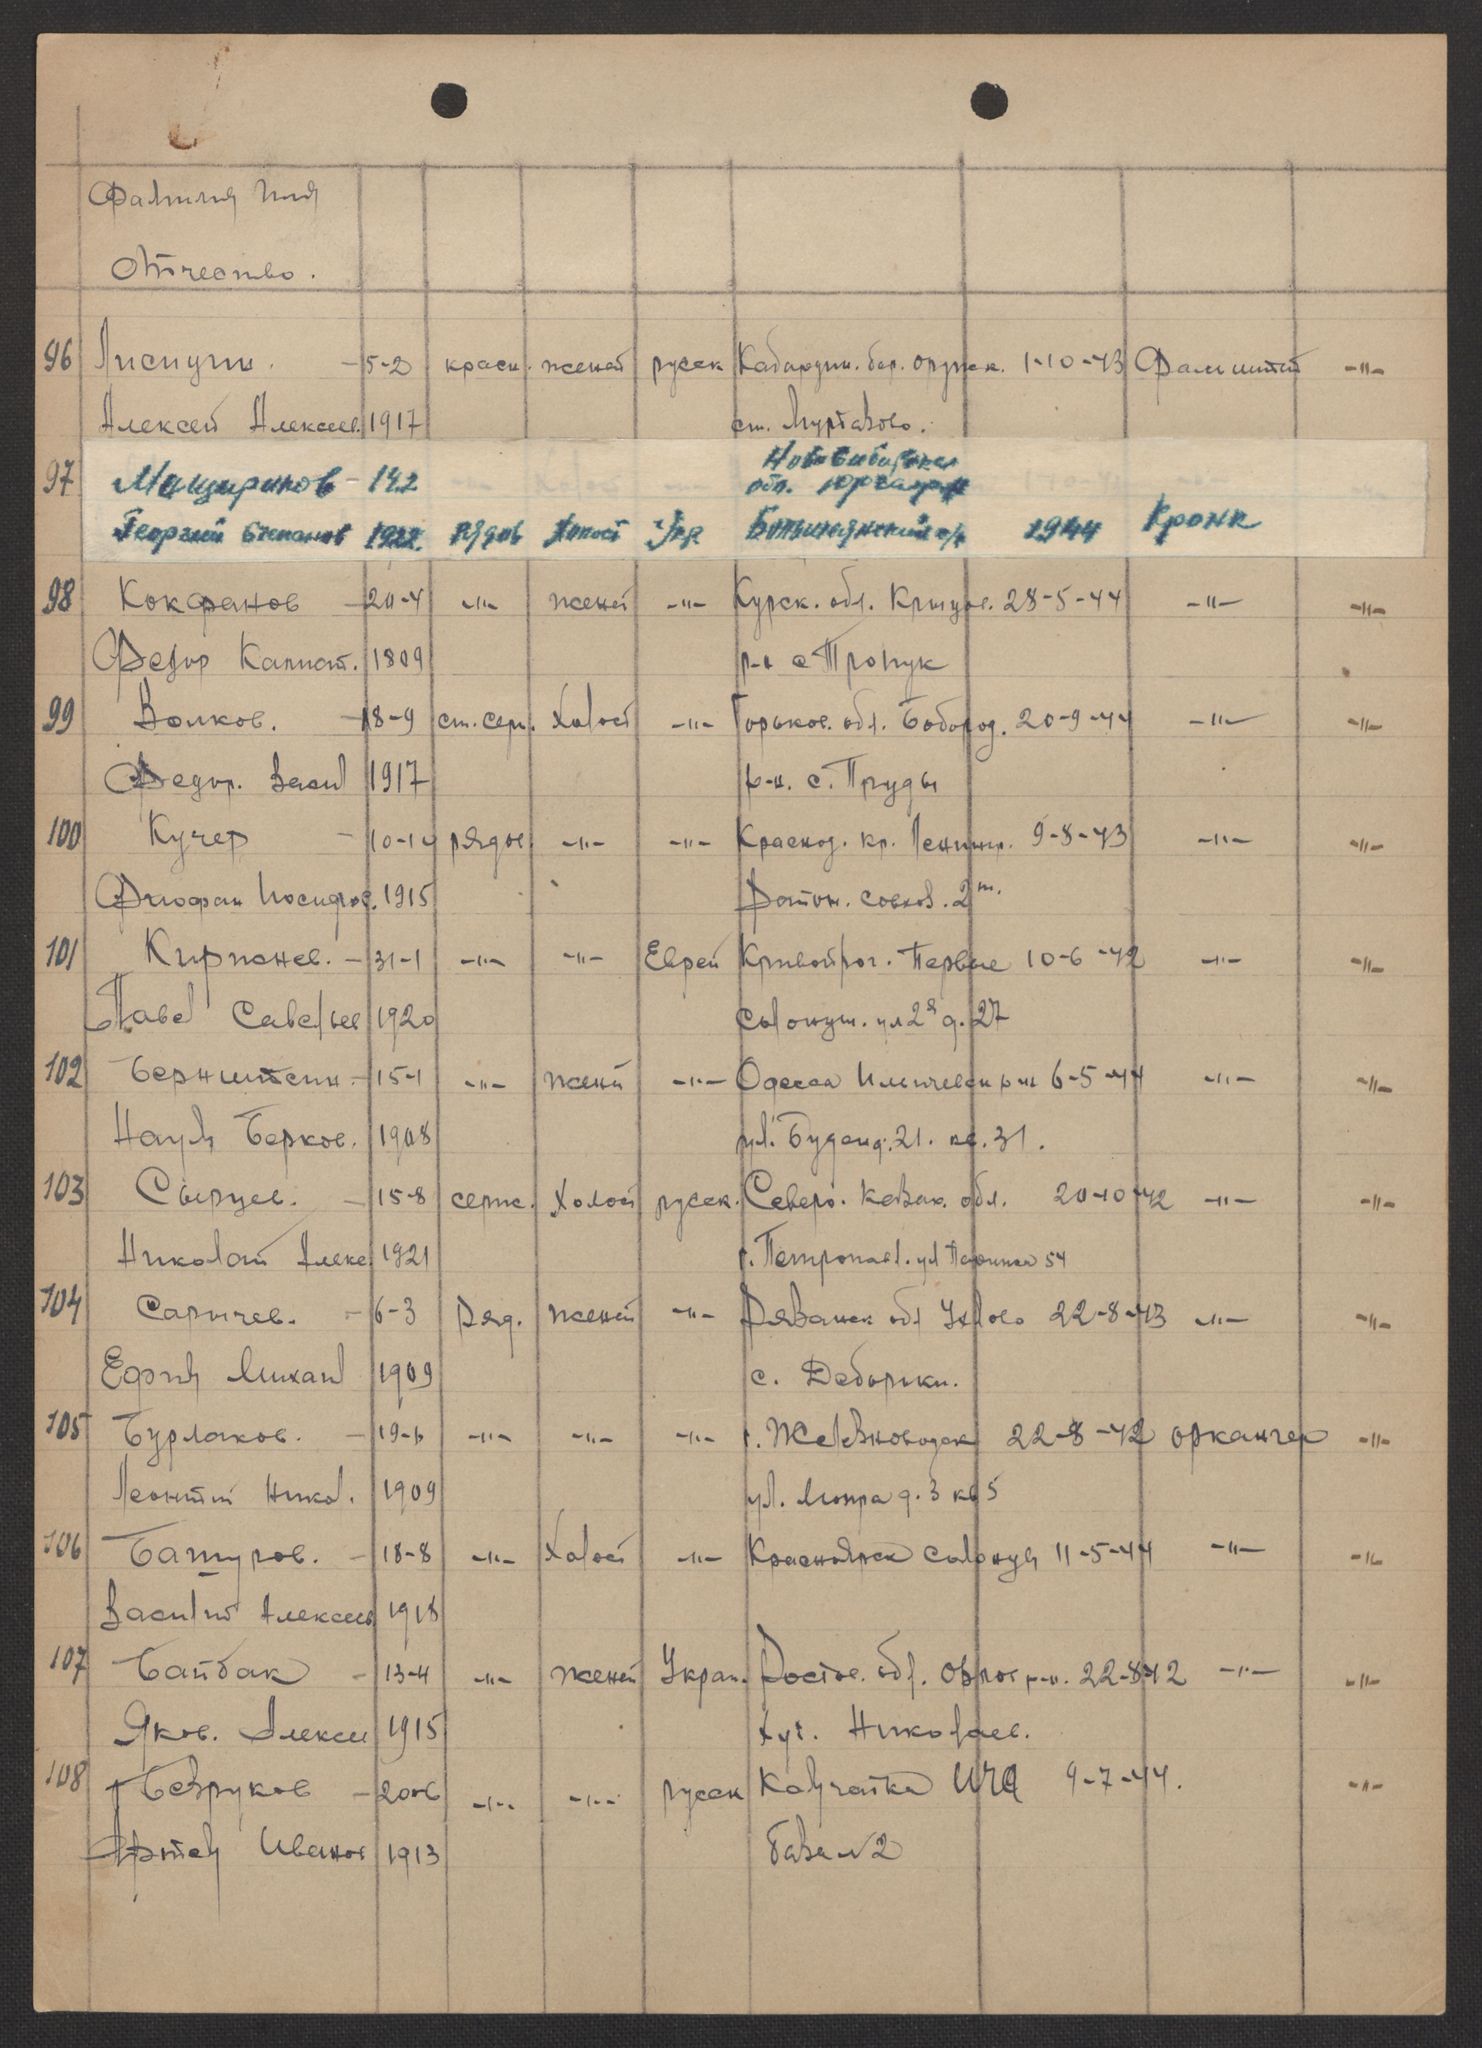 Фамилия Имя
Отчество.
96 Лисицин. - 5-2 красн. женат русск Кабардин. бал. окружн. 1-10-43 -"-
Алексей Алексеев. 1917 ст. Муртазово.
97 Мащиринов - 14.2 Новосибирская обл.
Георгий Степанов 1922. рядов Холост Укр 1944 Кронк
98 Кокфанов - 20-4 -"- женат -"- Курск. обл. Кривцов. 28-5-44 -"- -"-
Федор Капит. 1809 р-н с
99 Волков. - 18-9 ст. серж. Холост -"- Горьков. обл. Богород. 20-9-44 -"- -"-
Федор. Васил 1917 р-н. с. Пруды
100 Кучер - 10-10 рядов. -"- -"- Краснод. кр. Ленингр. 9-8-43 -"- -"-
Феофан Иосифов. 1915 совхоз. 2 т.
101 Кирпенев. - 31-1 -"- -"- Еврей Кривойрог. Первые 10-6-42 -"- -"-
Павел Савельев 1920 ул 2я д. 27
102 Бернштеин - 15-1 -"- женат -"- Одесса Ильичевск р-н 6-5-44 -"- -"-
Наум Берков. 1908 ул. Буден д. 21. кв. 31.
103 Сырцев. - 15-8 серж. Холост русск. Северо. Казах. обл. 20-10-42 -"- -"-
Николай Алекс 1921 г. Петропавл. ул 54
104 Сарычев. - 6-3 Ряд. женат -"- Рязанск обл Ухолов 22-8-43 -"- -"-
Ефим Михаил 1909 с.
105 Бурлаков. - 19-6 -"- -"- -"- г. Железноводск 22-8-42 -"-
Леонтий Никол. 1909 ул. Мопра д. 3 кв 5
106 Батуров. - 18-8 -"- Холост -"- Красноярск 11-5-44 -"- -"-
Василий Алексеев 1918
107 Байбак - 13-4 -"- женат Украи. Ростов. обл. р-н. 22-8-42 -"- -"-
Яков. Алексе 1915 Хут. Николаев.
108 Безруков - 20-6 -"- -"- русск Камчатка 9-7-44. -"-
Артем Иванов 1913 база №2